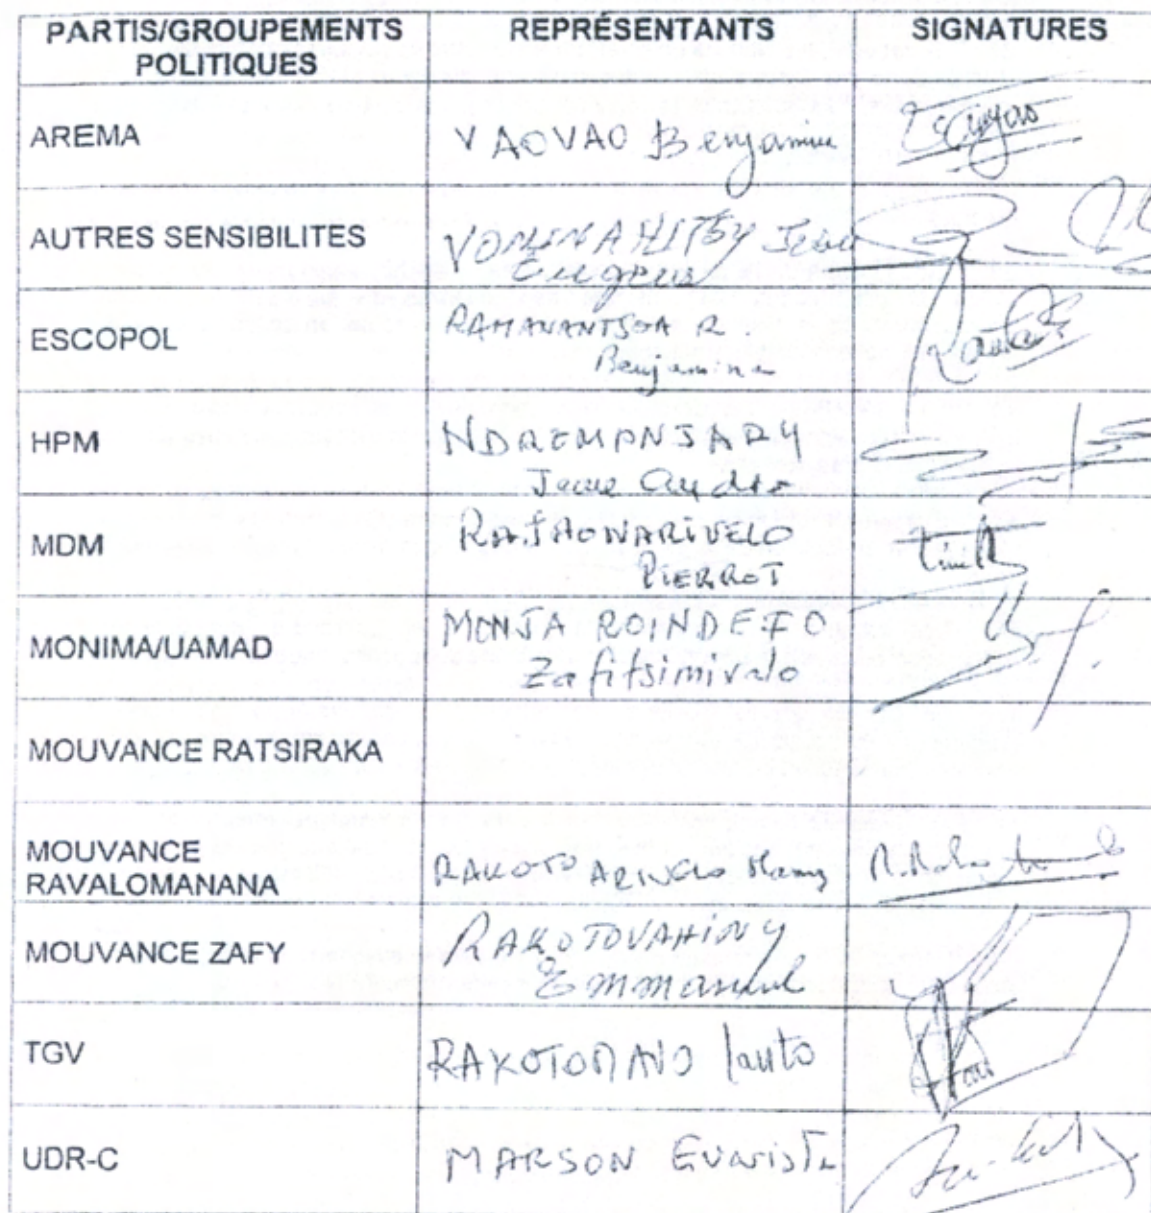 PARTIS/GROUPEMENTS POLITIQUES REPRÉSENTANTS SIGNATURES
AREMA VAOVAO Benjamin
AUTRES SENSIBILITES VONINAHITSY Jean
Eugène
ESCOPOL RAMANANTSOA R.
Benjamina
HPM NDREMANJARY
Jean André
MDM RAJAONARIVELO
PIERROT
MONIMA/UAMAD MONJA ROINDEFO
Zafitsimivalo
MOUVANCE RATSIRAKA
MOUVANCE
RAVALOMANANA RAKOTOARIVELO Mamy
MOUVANCE ZAFY RAKOTOVAHINY
Emmanuel
TGV RAKOTOMAVO
UDR-C MARSON Evariste